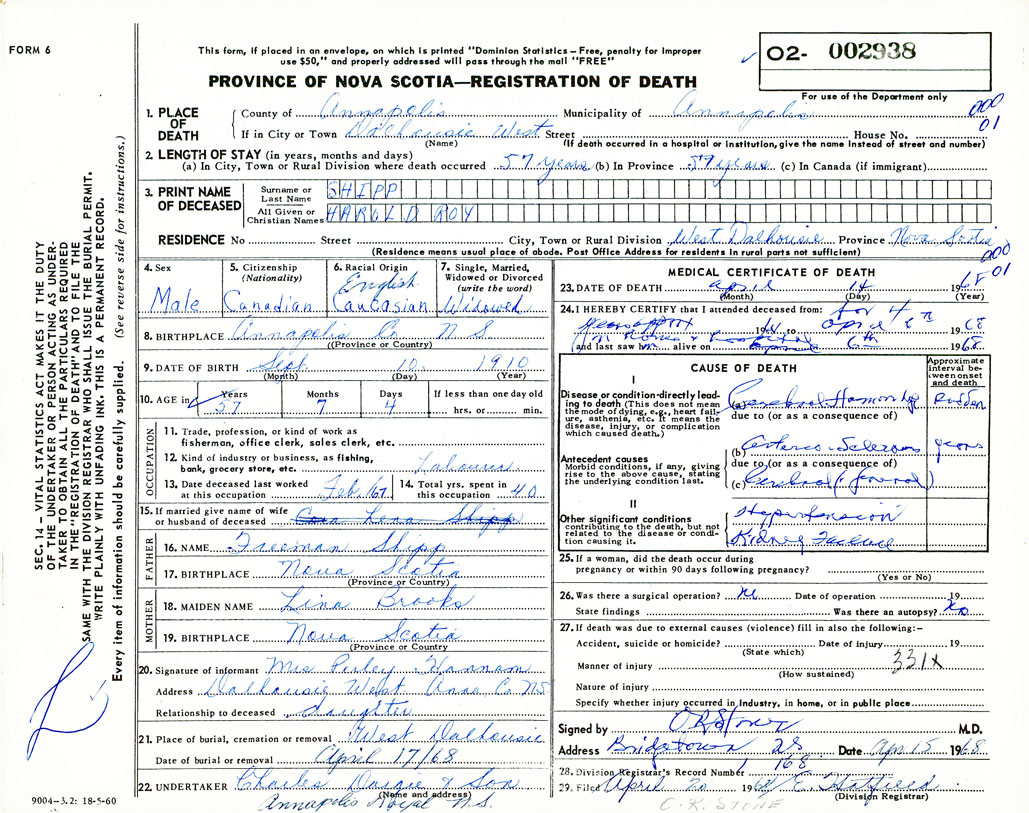 FORM 6
This form, if placed in an envelope, on which is printed "Dominion Statistics – Free, penalty for improper
use $50," and properly addressed will pass through the mail "FREE"
O2- 002938
PROVINCE OF NOVA SCOTIA—REGISTRATION OF DEATH
For use of the Department only
1. PLACE OF DEATH
County of Annapolis Municipality of Annapolis 000
If in City or Town Dalhousie West Street House No. 01
(Name) (If death occurred in a hospital or institution, give the name instead of street and number)
2. LENGTH OF STAY (in years, months and days)
(a) In City, Town or Rural Division where death occurred 57 years (b) In Province 57 years (c) In Canada (if immigrant)
3. PRINT NAME OF DECEASED
Surname or Last Name SHIPP
All Given or Christian Names HAROLD ROY
RESIDENCE No Street City, Town or Rural Division West Dalhousie Province Nova Scotia
(Residence means usual place of abode. Post Office Address for residents in rural parts not sufficient)
000
01
4. Sex Male
5. Citizenship (Nationality) Canadian
6. Racial Origin English Caucasian
7. Single, Married, Widowed or Divorced (write the word) Widowed
8. BIRTHPLACE Annapolis Co. N S
(Province or Country)
9. DATE OF BIRTH Sept. 10 1910
(Month) (Day) (Year)
10. AGE in Years 57 Months 7 Days 4 If less than one day old
hrs. or min.
OCCUPATION
11. Trade, profession, or kind of work as
fisherman, office clerk, sales clerk, etc.
12. Kind of industry or business, as fishing,
bank, grocery store, etc. Labourer
13. Date deceased last worked at this occupation Feb. /67
14. Total yrs. spent in this occupation 40
15. If married give name of wife
or husband of deceased Lena Shipp
FATHER
16. NAME Freeman Shipp
17. BIRTHPLACE Nova Scotia
(Province or Country)
MOTHER
18. MAIDEN NAME Lina Brooks
19. BIRTHPLACE Nova Scotia
(Province or Country)
20. Signature of informant Mrs Perley Hannam
Address Dalhousie West Anna Co. NS
Relationship to deceased daughter
21. Place of burial, cremation or removal West Dalhousie
Date of burial or removal April 17/68
22. UNDERTAKER Charles Daigie & Son
(Name and address)
Annapolis Royal N.S.
MEDICAL CERTIFICATE OF DEATH
23. DATE OF DEATH April 14 1968
(Month) (Day) (Year)
24. I HEREBY CERTIFY that I attended deceased from: for 4
years 19 to April 6th 1968
and last saw him alive on 6th 1968
CAUSE OF DEATH
Approximate interval between onset and death
I
Disease or condition directly leading to death (This does not mean the mode of dying, e.g., heart failure, asthenia, etc. It means the disease, injury, or complication which caused death.)
(a) Cerebral Hemorrhage Sudden
due to (or as a consequence of)
Antecedent causes
Morbid conditions, if any, giving rise to the above cause, stating the underlying condition last.
(b) Arterio-Sclerosis years
due to (or as a consequence of)
(c) Cerebral (& general)
II
Other significant conditions
contributing to the death, but not related to the disease or condition causing it.
Hypertension
Kidney Failure
25. If a woman, did the death occur during
pregnancy or within 90 days following pregnancy?
(Yes or No)
26. Was there a surgical operation? no Date of operation 19
State findings Was there an autopsy? No
27. If death was due to external causes (violence) fill in also the following:–
Accident, suicide or homicide? Date of injury 19
(State which)
Manner of injury 331X
(How sustained)
Nature of injury
Specify whether injury occurred in industry, in home, or in public place
Signed by M.D.
Address Bridgetown NS Date Apr 15 1968
28. Division Registrar's Record Number 168
29. Filed April 20 1968 E. Hatfield
(Division Registrar)
C. K. STONE
SEC. 14 – VITAL STATISTICS ACT MAKES IT THE DUTY
OF THE UNDERTAKER OR PERSON ACTING AS UNDER-
TAKER TO OBTAIN ALL THE PARTICULARS REQUIRED
IN THE "REGISTRATION OF DEATH" AND TO FILE THE
SAME WITH THE DIVISION REGISTRAR WHO SHALL ISSUE THE BURIAL PERMIT.
WRITE PLAINLY WITH UNFADING INK. THIS IS A PERMANENT RECORD.
Every item of information should be carefully supplied. (See reverse side for instructions.)
9004-3.2: 18-5-60